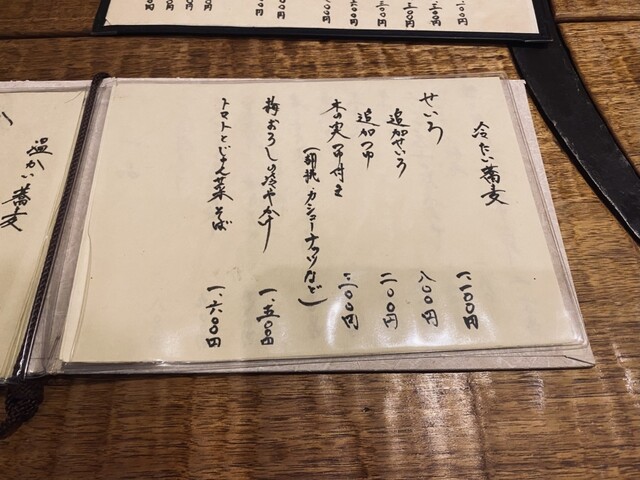 冷たい蕎麦
せいろ 一、一〇〇円
追加せいろ 八〇〇円
追加つゆ 二〇〇円
木の実つゆ付き
(胡桃・カシューナッツなど)
梅おろしの冷やかけ 一、五〇〇円
トマトとじゅん菜そば 一、六〇〇円
温かい蕎麦